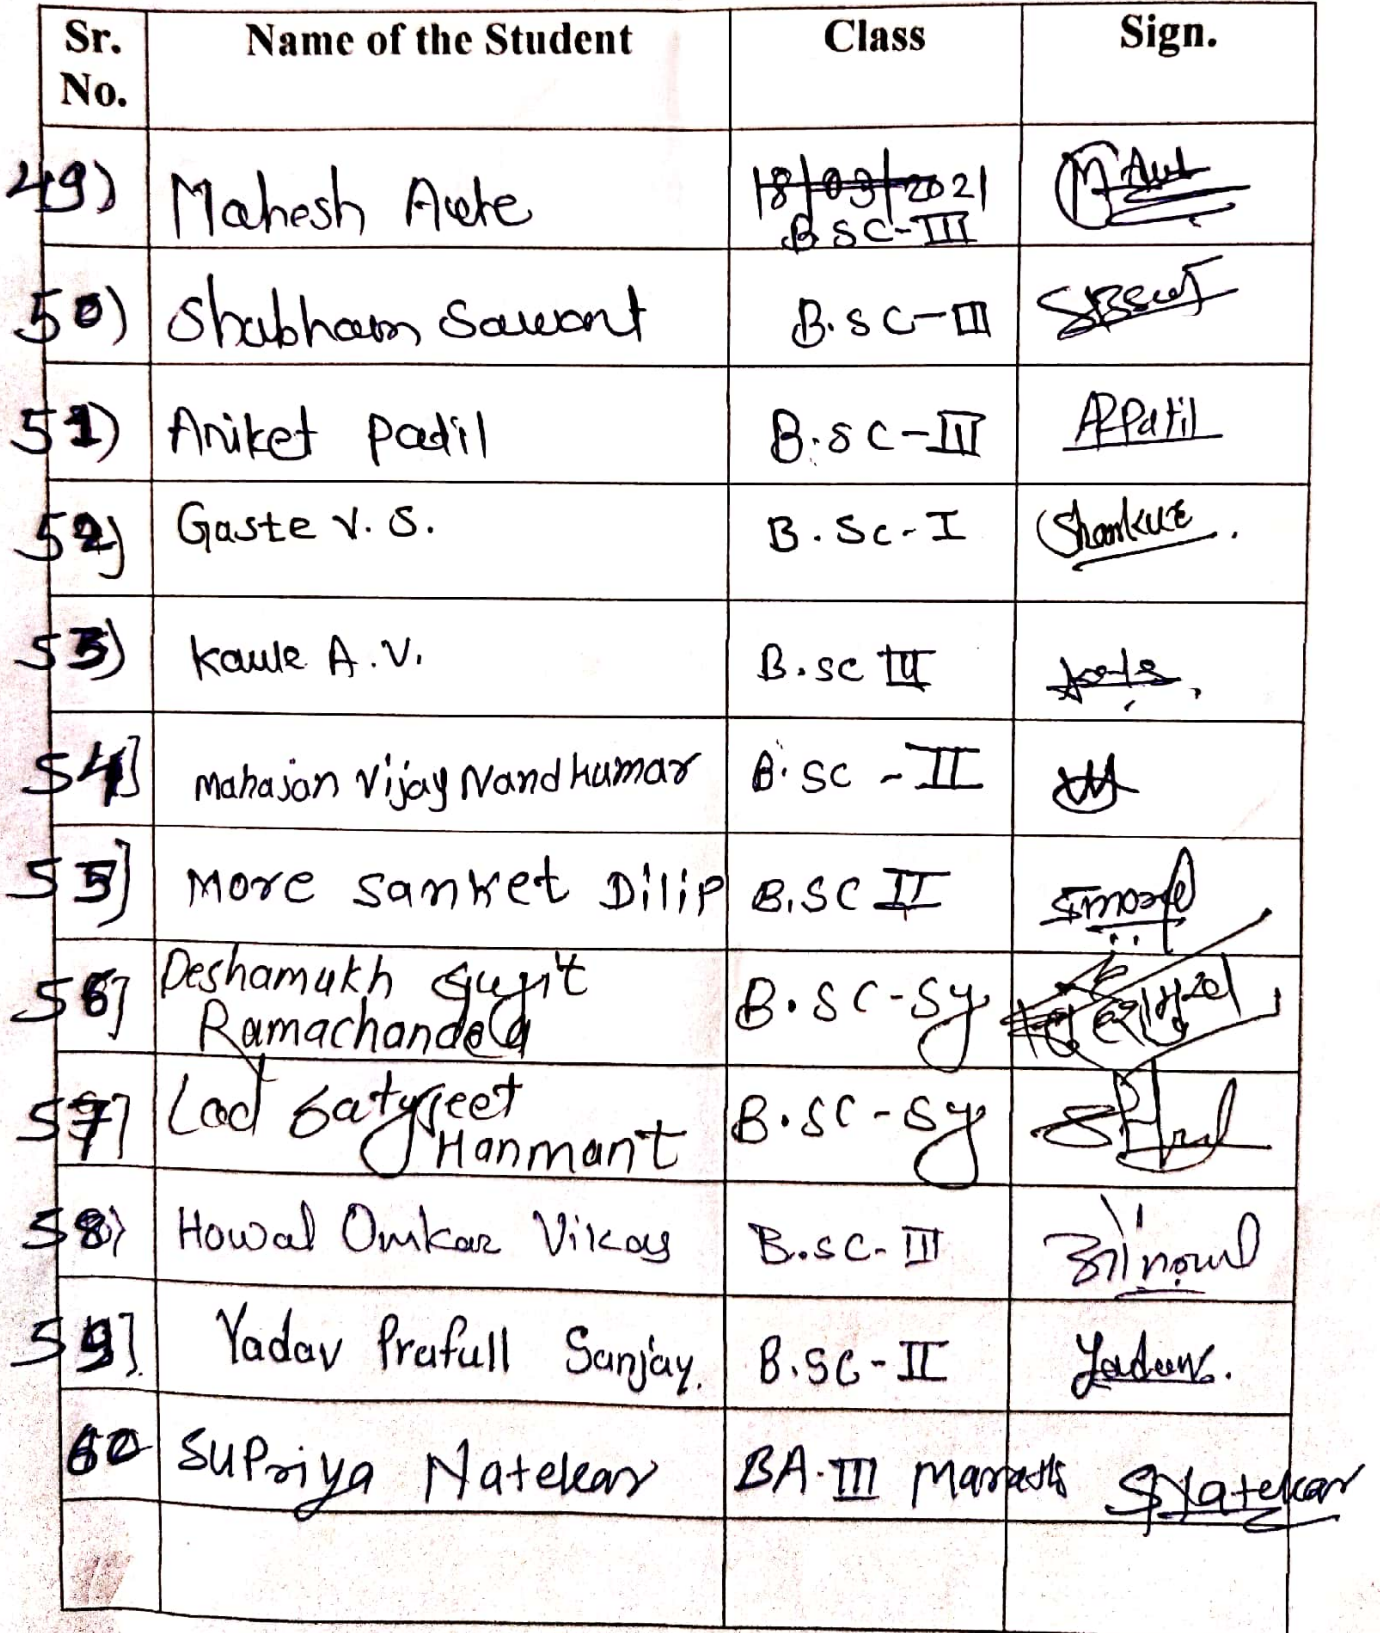 Sr. No. Name of the Student Class Sign.
49) Mahesh Awte 18/03/2021
B SC-III
50) Shubham Sawant B.SC-III
51) Aniket Patil B.SC-III APPatil
52) Gaste V. S. B.Sc-I
53) Kaule A.V. B.SC III
54] Mahajan Vijay Nandkumar B.SC-II
55] More Sanket Dilip B.SC II Smore
56] Deshamukh Sujit
Ramachandra B.SC-Sy
57] Lad Satyjeet
Hanmant B.SC-Sy
58) Howal Omkar Vikas B.SC-III
59]. Yadav Prafull Sanjay. B.SC-II Yadav.
60 Supriya Natekar BA.III Marathi SNatekar